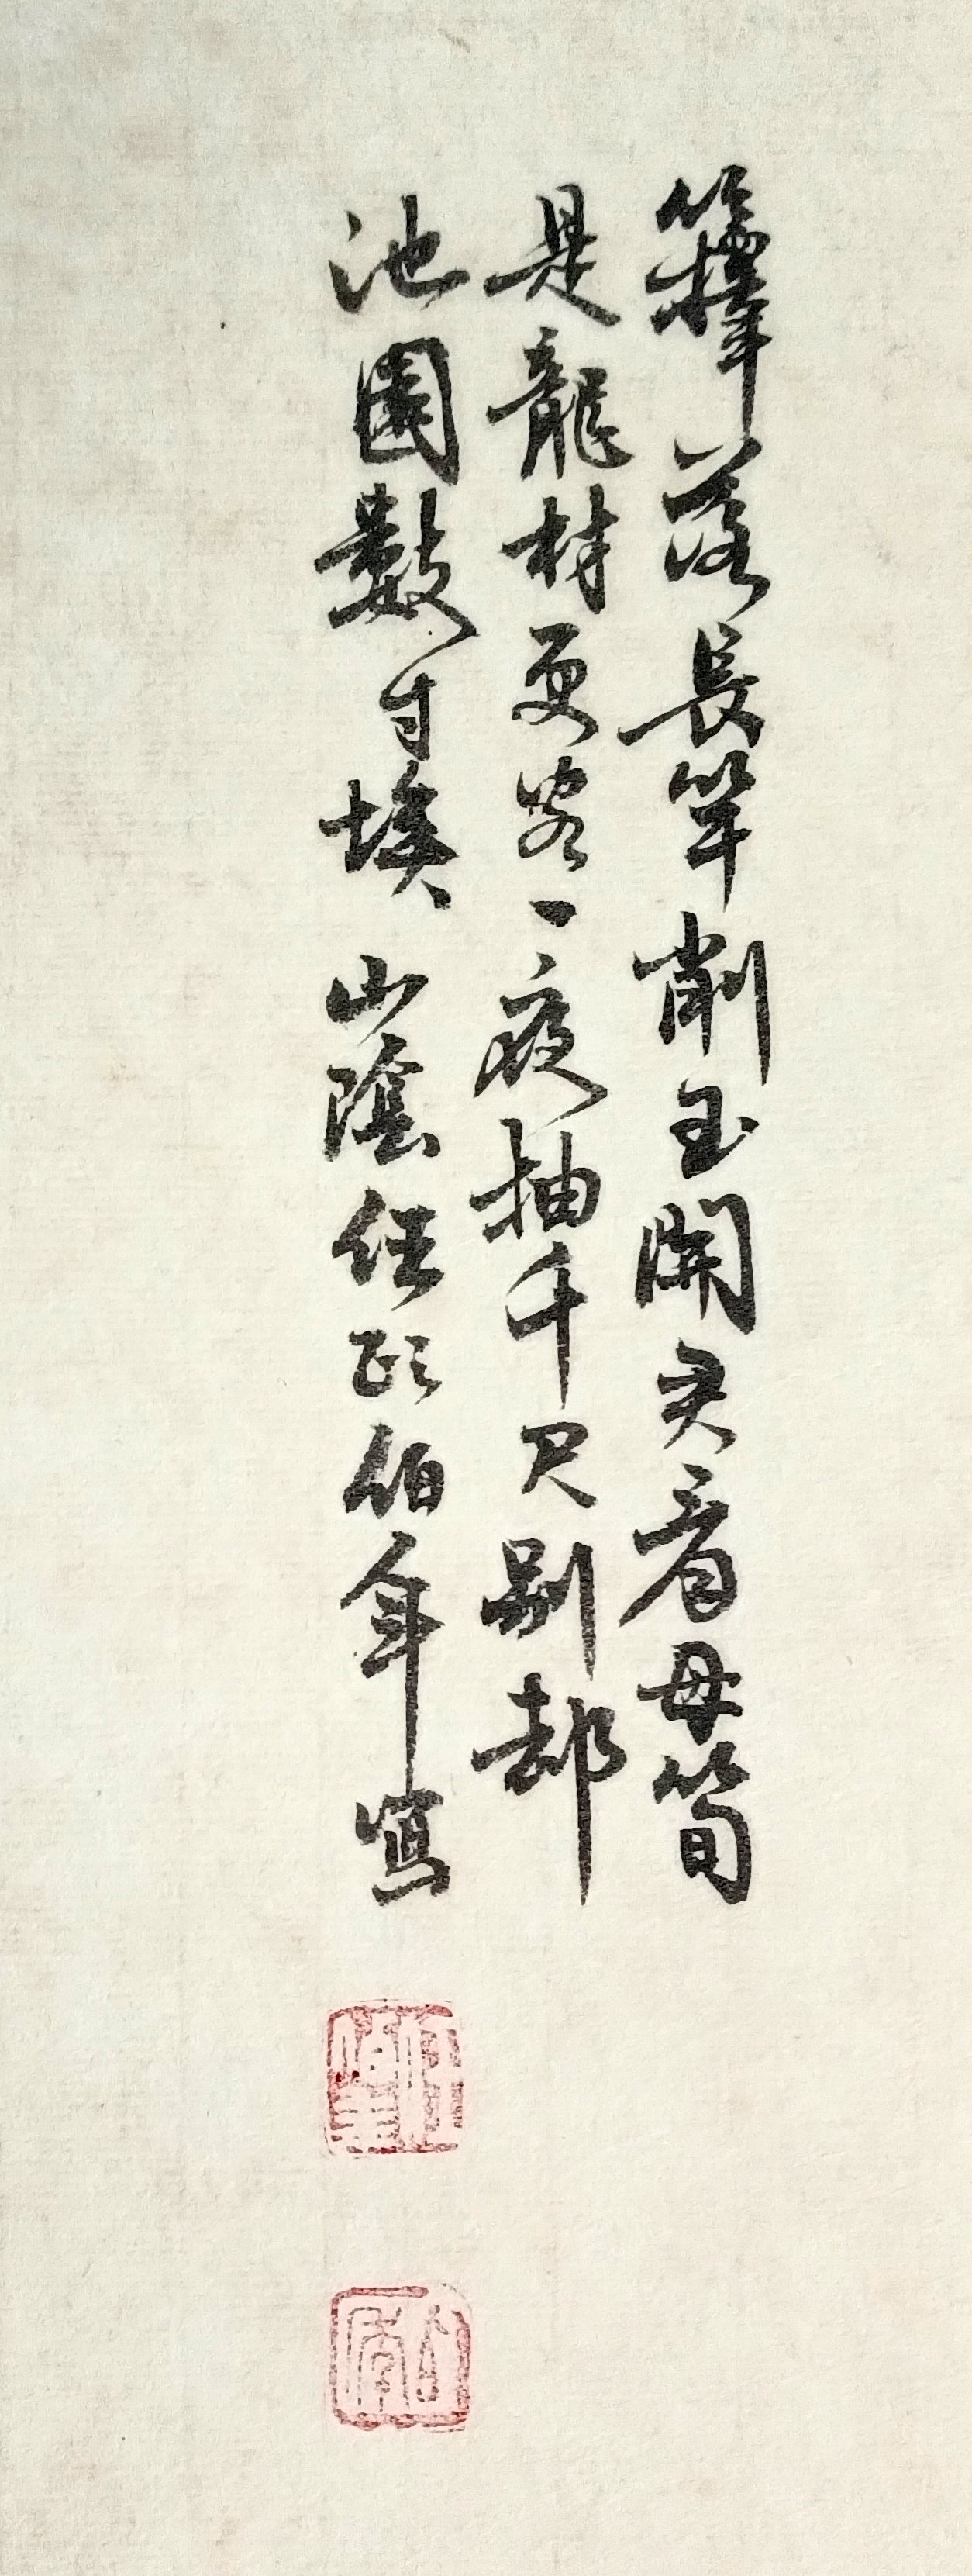 籜落長竿削玉開君看母筍
是龍材更容一夜抽千尺别却
池園數寸埃 山陰任頤伯年寫